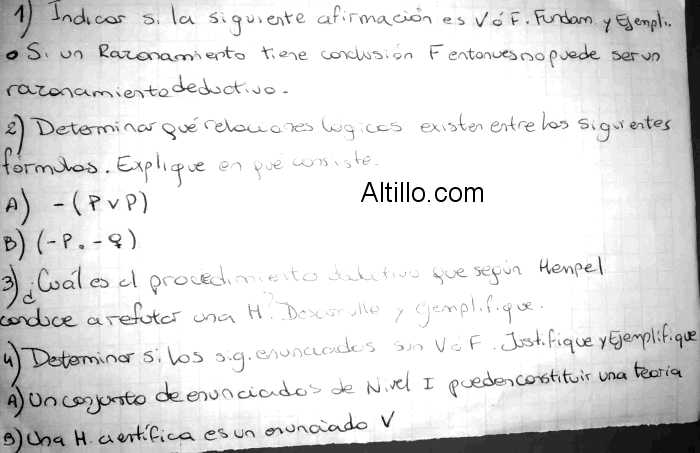 1) Indicar si la siguiente afirmación es V ó F. Fundam. y Ejempli.
• Si un Razonamiento tiene conclusión F entonces no puede ser un
razonamiento deductivo.
2) Determinar qué relaciones logicas existen entre las siguientes
formulas. Explique en qué consiste.
Altillo.com
A) -(P v P)
B) (-P . -q)
3) ¿Cuál es el procedimiento deductivo que según Hempel
conduce a refutar una H? Desarrolle y ejemplifique.
4) Determinar si los sig. enunciados son V ó F. Justifique y Ejemplifique
A) Un conjunto de enunciados de Nivel I pueden constituir una teoría
B) Una H. científica es un enunciado V